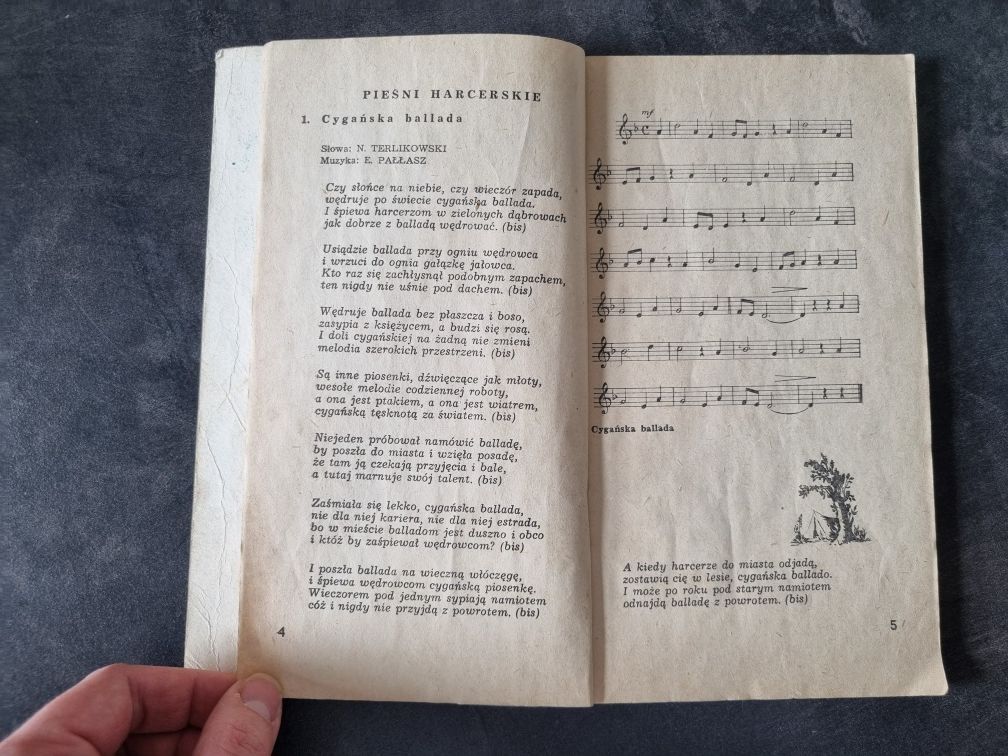 PIEŚNI HARCERSKIE
1. Cygańska ballada
Słowa: N. TERLIKOWSKI
Muzyka: E. PAŁŁASZ
Czy słońce na niebie, czy wieczór zapada,
wędruje po świecie cygańska ballada.
I śpiewa harcerzom w zielonych dąbrowach
jak dobrze z balladą wędrować. (bis)
Usiądzie ballada przy ogniu wędrowca
i wrzuci do ognia gałązkę jałowca.
Kto raz się zachłysnął podobnym zapachem,
ten nigdy nie uśnie pod dachem. (bis)
Wędruje ballada bez płaszcza i boso,
zasypia z księżycem, a budzi się rosą.
I doli cygańskiej na żadną nie zmieni
melodia szerokich przestrzeni. (bis)
Są inne piosenki, dźwięczące jak młoty,
wesołe melodie codziennej roboty,
a ona jest ptakiem, a ona jest wiatrem,
cygańską tęsknotą za światem. (bis)
Niejeden próbował namówić balladę,
by poszła do miasta i wzięła posadę,
że tam ją czekają przyjęcia i bale,
a tutaj marnuje swój talent. (bis)
Zaśmiała się lekko, cygańska ballada,
nie dla niej kariera, nie dla niej estrada,
bo w mieście balladom jest duszno i obco
i któż by zaśpiewał wędrowcom? (bis)
I poszła ballada na wieczną włóczęgę,
i śpiewa wędrowcom cygańską piosenkę.
Wieczorem pod jednym sypiają namiotem
cóż i nigdy nie przyjdą z powrotem. (bis)
4
mf
Cygańska ballada
A kiedy harcerze do miasta odjadą,
zostawią cię w lesie, cygańska ballado.
I może po roku pod starym namiotem
odnajdą balladę z powrotem. (bis)
5